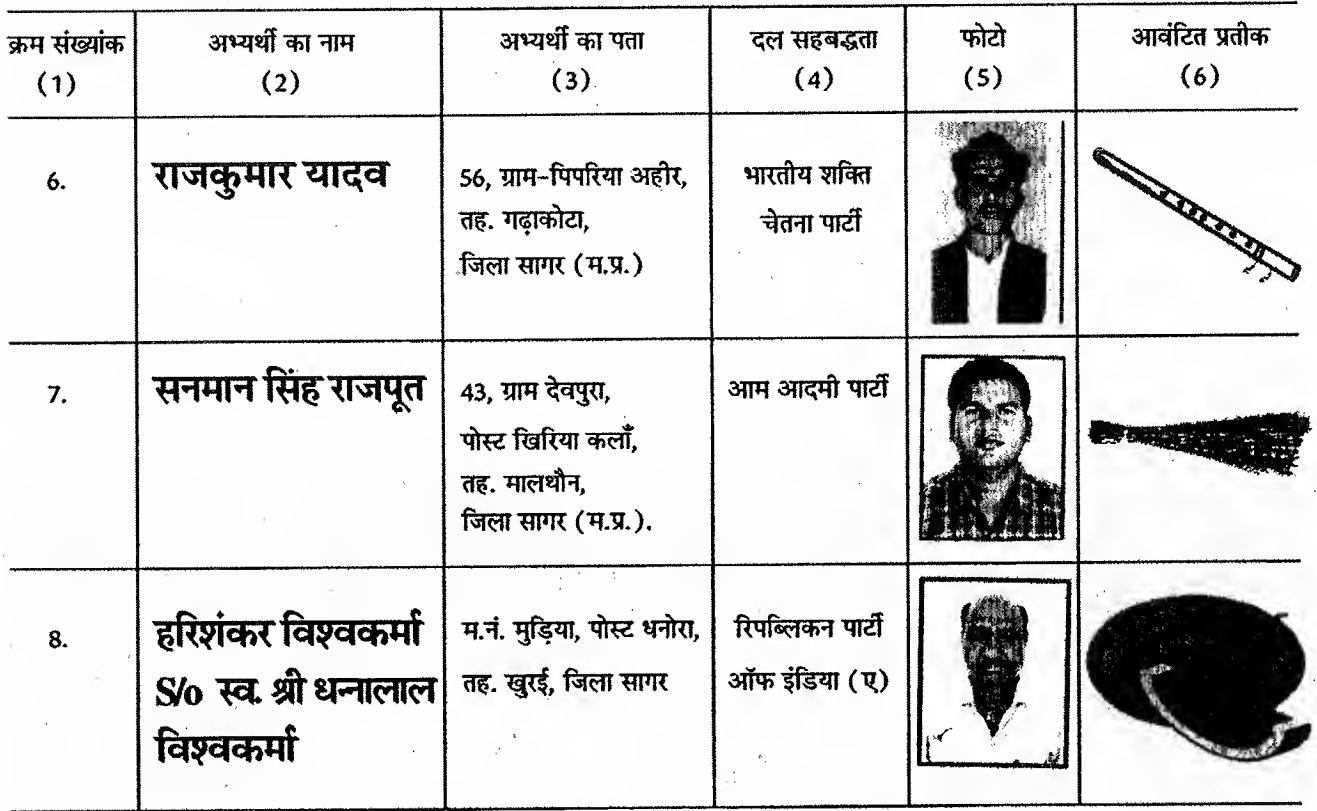 क्रम संख्यांक
(1)
अभ्यर्थी का नाम
(2)
अभ्यर्थी का पता
(3)
दल सहबद्धता
(4)
फोटो
(5)
आवंटित प्रतीक
(6)
6.
राजकुमार यादव
56, ग्राम-पिपरिया अहीर,
तह. गढ़ाकोटा,
जिला सागर (म.प्र.)
भारतीय शक्ति
चेतना पार्टी
7.
सनमान सिंह राजपूत
43, ग्राम देवपुरा,
पोस्ट खिरिया कलाँ,
तह. मालथौन,
जिला सागर (म.प्र.).
आम आदमी पार्टी
8.
हरिशंकर विश्वकर्मा
S/o स्व. श्री धन्नालाल
विश्वकर्मा
म.नं. मुड़िया, पोस्ट धनोरा,
तह. खुरई, जिला सागर
रिपब्लिकन पार्टी
ऑफ इंडिया (ए)